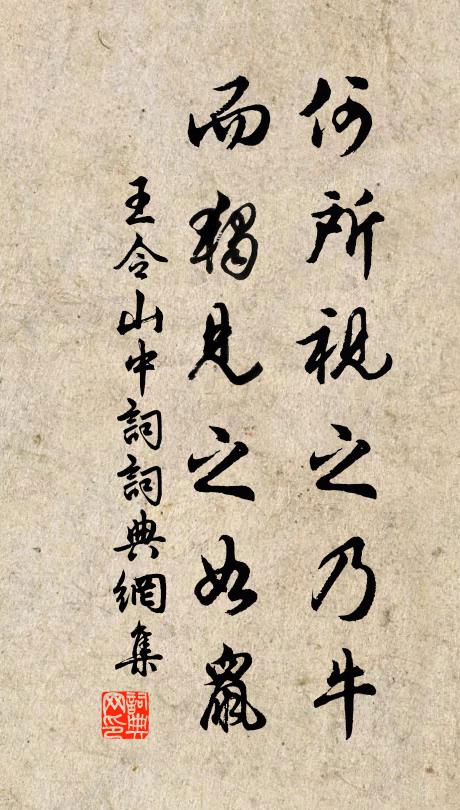 何所視之乃牛
而獨見之如鼠
王令山中詞詞典網集
詞典网印